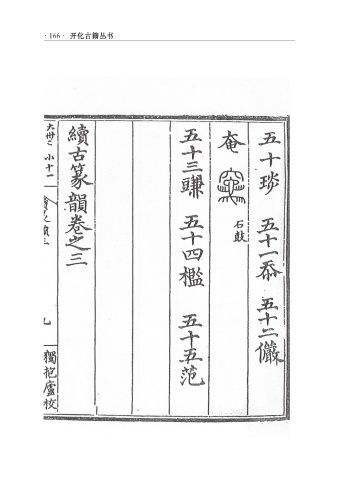 · 166 · 开化古籍丛书
五十琰 五十一忝 五十二儼
奄
石鼓
五十三豏 五十四檻 五十五范
續古篆韻卷之三
大卅七 小十一
九
獨抱廬校